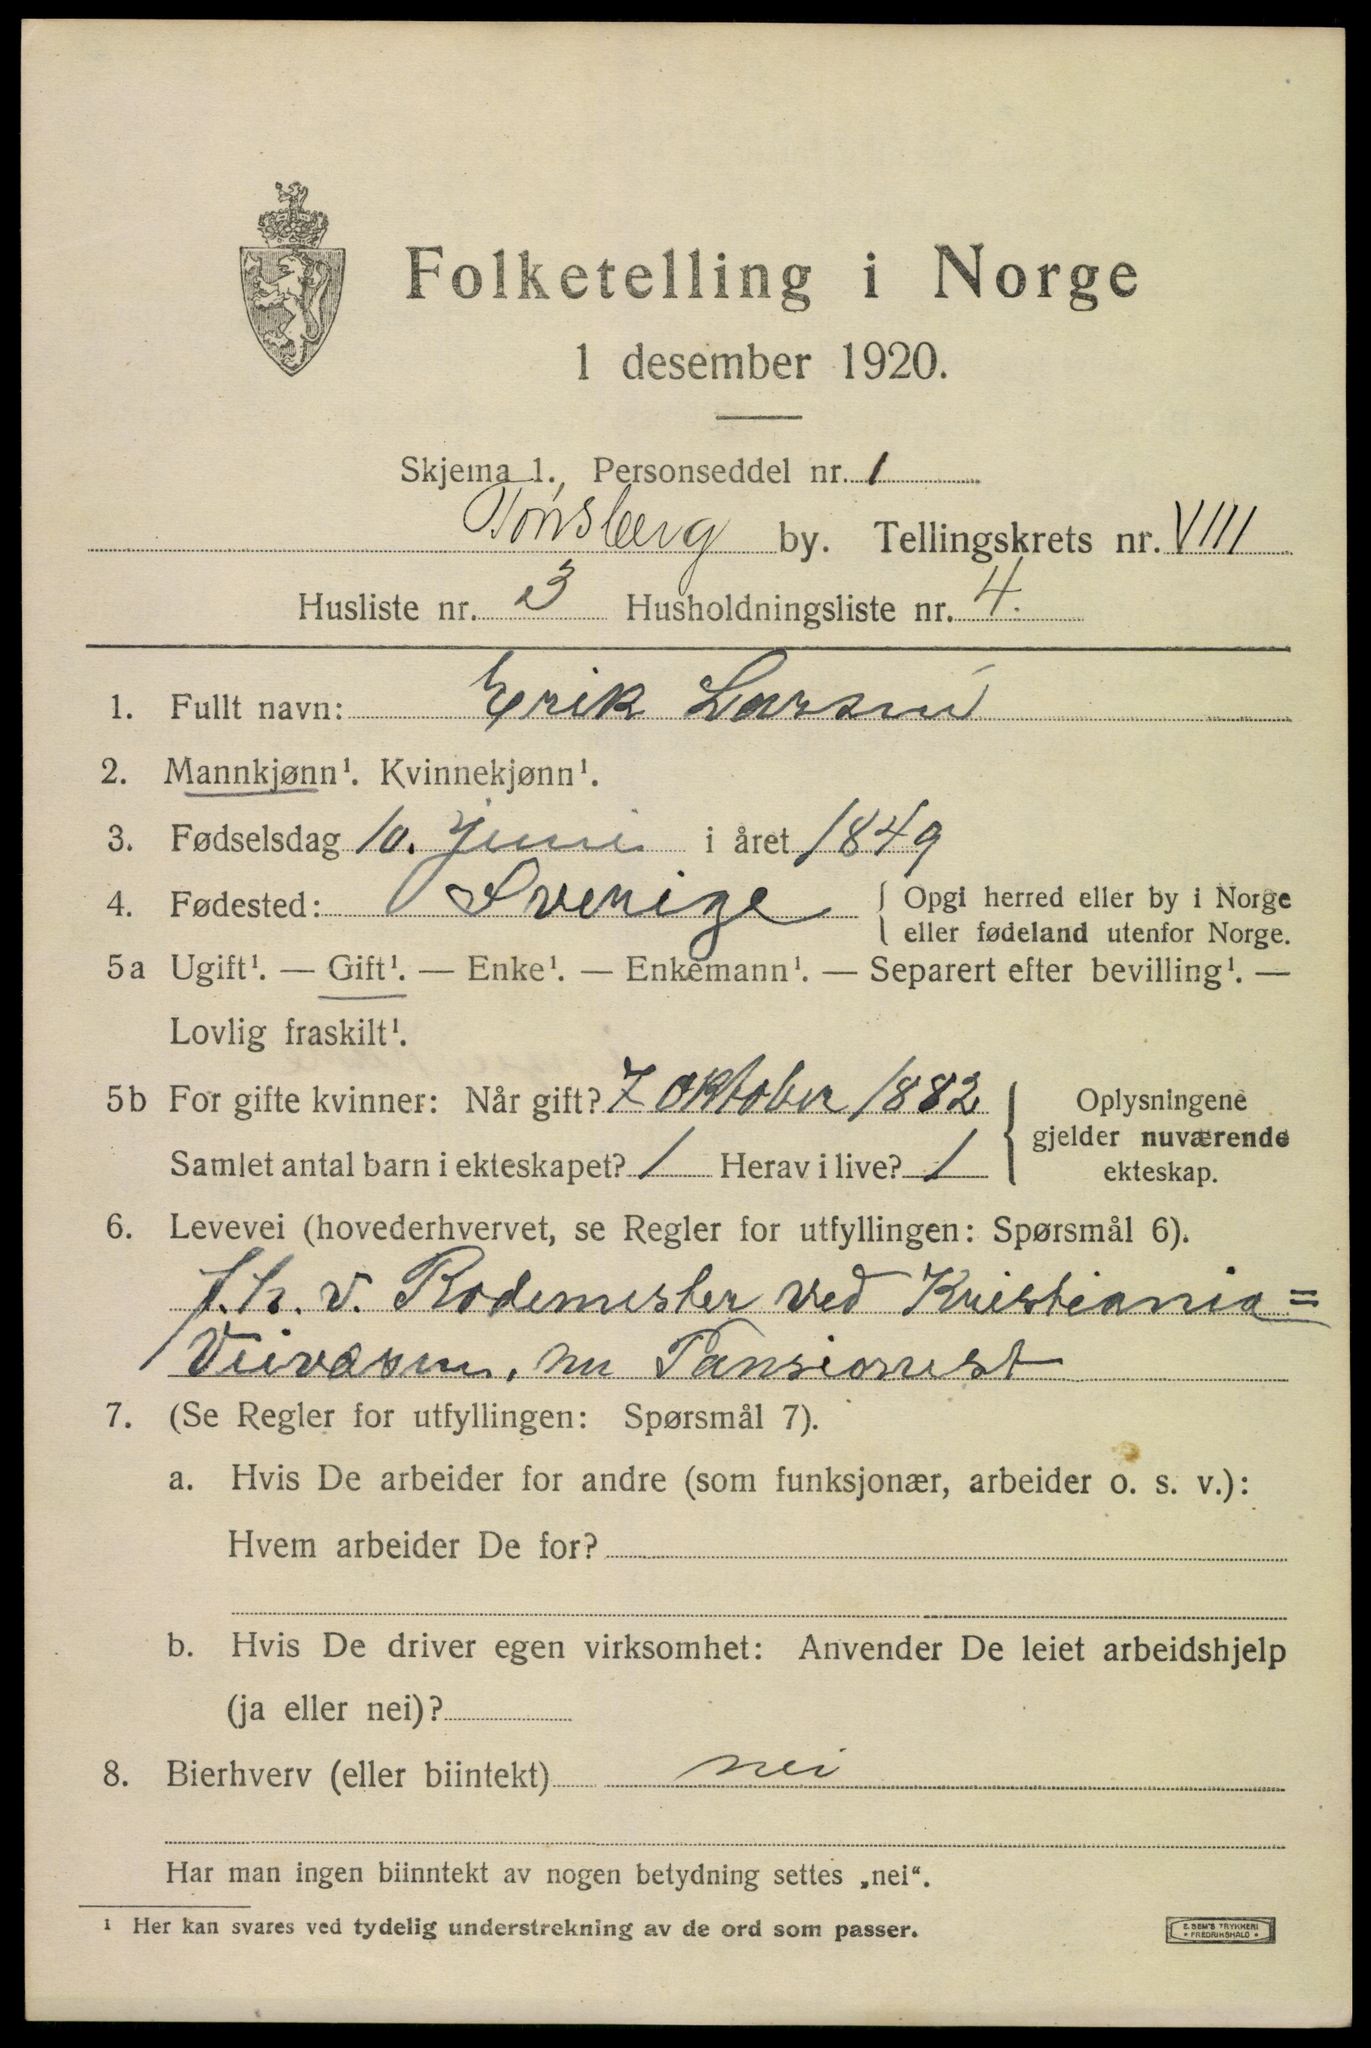 Folketelling i Norge
1 desember 1920.
Skjema 1. Personseddel nr. 1
Tønsberg by. Tellingskrets nr. VIII
Husliste nr. 3 Husholdningsliste nr. 4.
1. Fullt navn: Erik Larsen
2. Mannkjønn¹. Kvinnekjønn¹.
3. Fødselsdag 10. Juni i året 1849
4. Fødested: Sverige { Opgi herred eller by i Norge
eller fødeland utenfor Norge.
5a Ugift¹. — Gift¹. — Enke¹. — Enkemann¹. — Separert efter bevilling¹. —
Lovlig fraskilt¹.
5b For gifte kvinner: Når gift? 7 Oktober 1882 { Oplysningene
gjelder nuværende
Samlet antal barn i ekteskapet? 1 Herav i live? 1 ekteskap.
6. Levevei (hovederhvervet, se Regler for utfyllingen: Spørsmål 6).
f.h. v. Rodemester ved Kristiania=
Veivæsen, nu Pansionist
7. (Se Regler for utfyllingen: Spørsmål 7).
a. Hvis De arbeider for andre (som funksjonær, arbeider o. s. v.):
Hvem arbeider De for?
b. Hvis De driver egen virksomhet: Anvender De leiet arbeidshjelp
(ja eller nei)?
8. Bierhverv (eller biintekt) nei
Har man ingen biinntekt av nogen betydning settes „nei“.
¹ Her kan svares ved tydelig understrekning av de ord som passer.
E. SEM'S TRYKKERI
* FREDRIKSHALD *